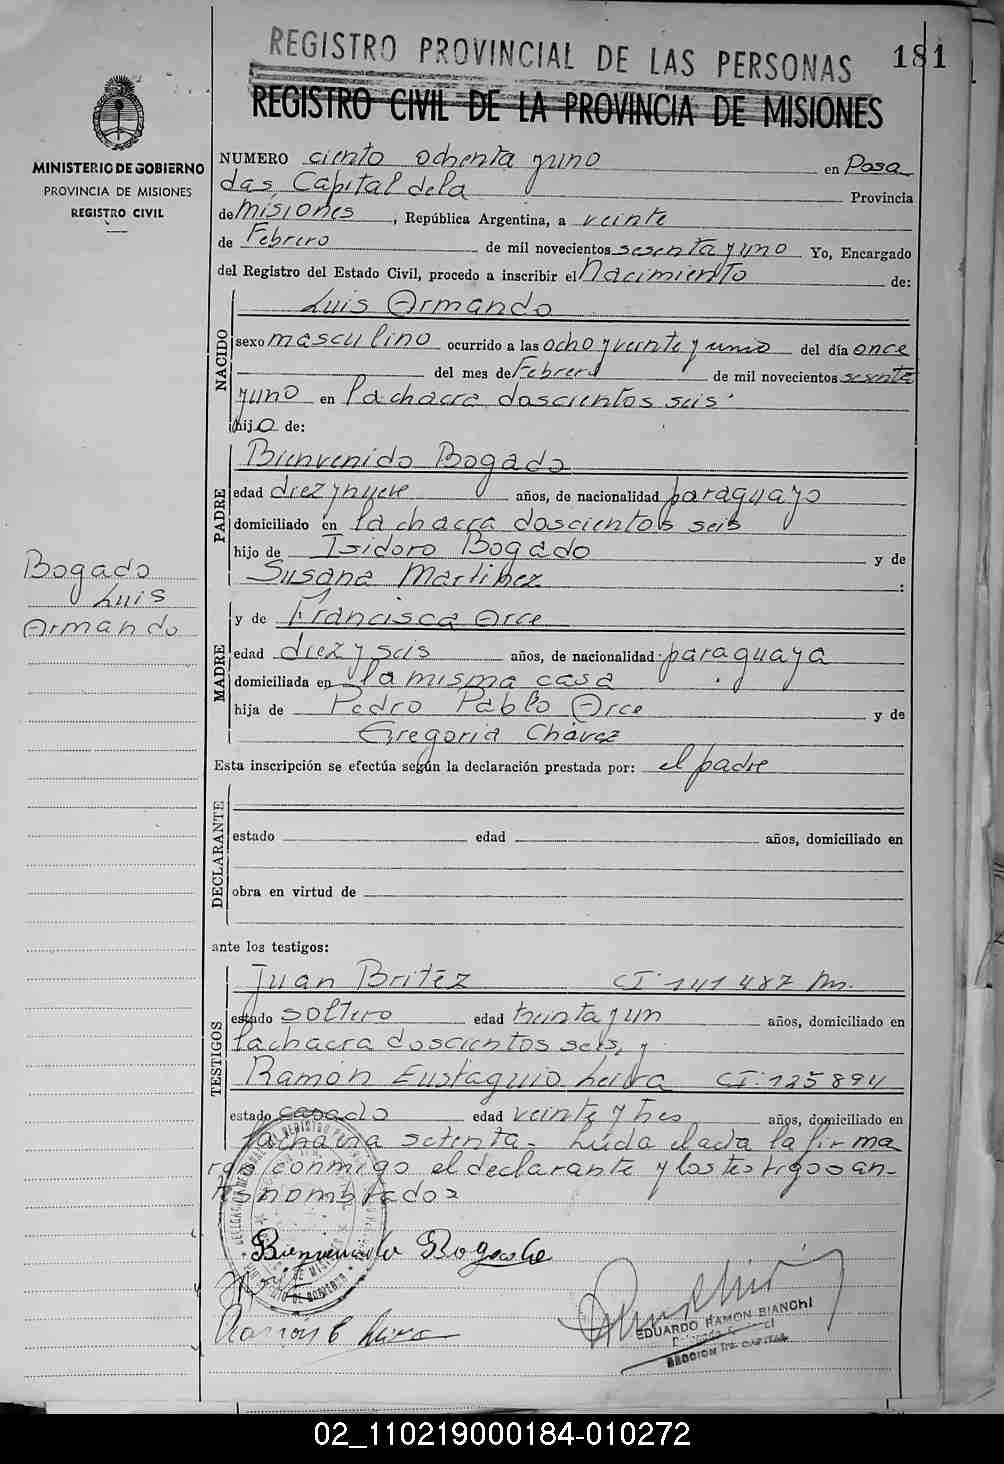 REGISTRO PROVINCIAL DE LAS PERSONAS
181
REGISTRO CIVIL DE LA PROVINCIA DE MISIONES
MINISTERIO DE GOBIERNO
PROVINCIA DE MISIONES
REGISTRO CIVIL
NUMERO ciento ochenta yuno en Posa
das, Capital dela Provincia
de Misiones, República Argentina, a veinte
de Febrero de mil novecientos sesenta y uno Yo, Encargado
del Registro del Estado Civil, procedo a inscribir el Nacimiento de:
NACIDO
Luis Armando
sexo masculino ocurrido a las ocho y veinte y uno del día once
del mes de Febrero de mil novecientos sesenta
yuno en la chacra doscientos seis
hijo de:
PADRE
Bienvenido Bogado
edad diez y nueve años, de nacionalidad paraguayo
domiciliado en la chacra doscientos seis
hijo de Isidoro Bogado y de
Susana Martinez :
Bogado
Luis
Armando
MADRE
y de Francisca Orce
edad diez y seis años, de nacionalidad paraguaya
domiciliada en la misma casa
hija de Pedro Pablo Orce y de
Gregoria Chávez
Esta inscripción se efectúa según la declaración prestada por: el padre
DECLARANTE
estado edad años, domiciliado en
obra en virtud de
ante los testigos:
TESTIGOS
Juan Britez CI 141487 M.
estado soltero edad treinta y un años, domiciliado en
la chacra doscientos seis, y
Ramón Eustaquio Leiva CI. 125894
estado casado edad veinte y tres años, domiciliado en
la chacra setenta - Leida el acta la firma
ron conmigo el declarante y los testigos an-
tes nombrados
Bienvenido Bogado
Ramón E Leiva
EDUARDO RAMON BIANCHI
SECCION 1ra. CAPITAL
02_110219000184-010272